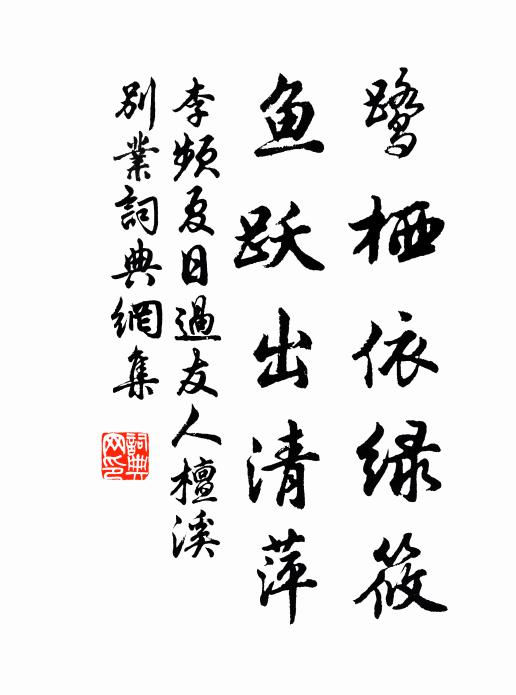 鹭栖依绿筱
鱼跃出清萍
李频夏日过友人檀溪
别业词典網集
詞典网印